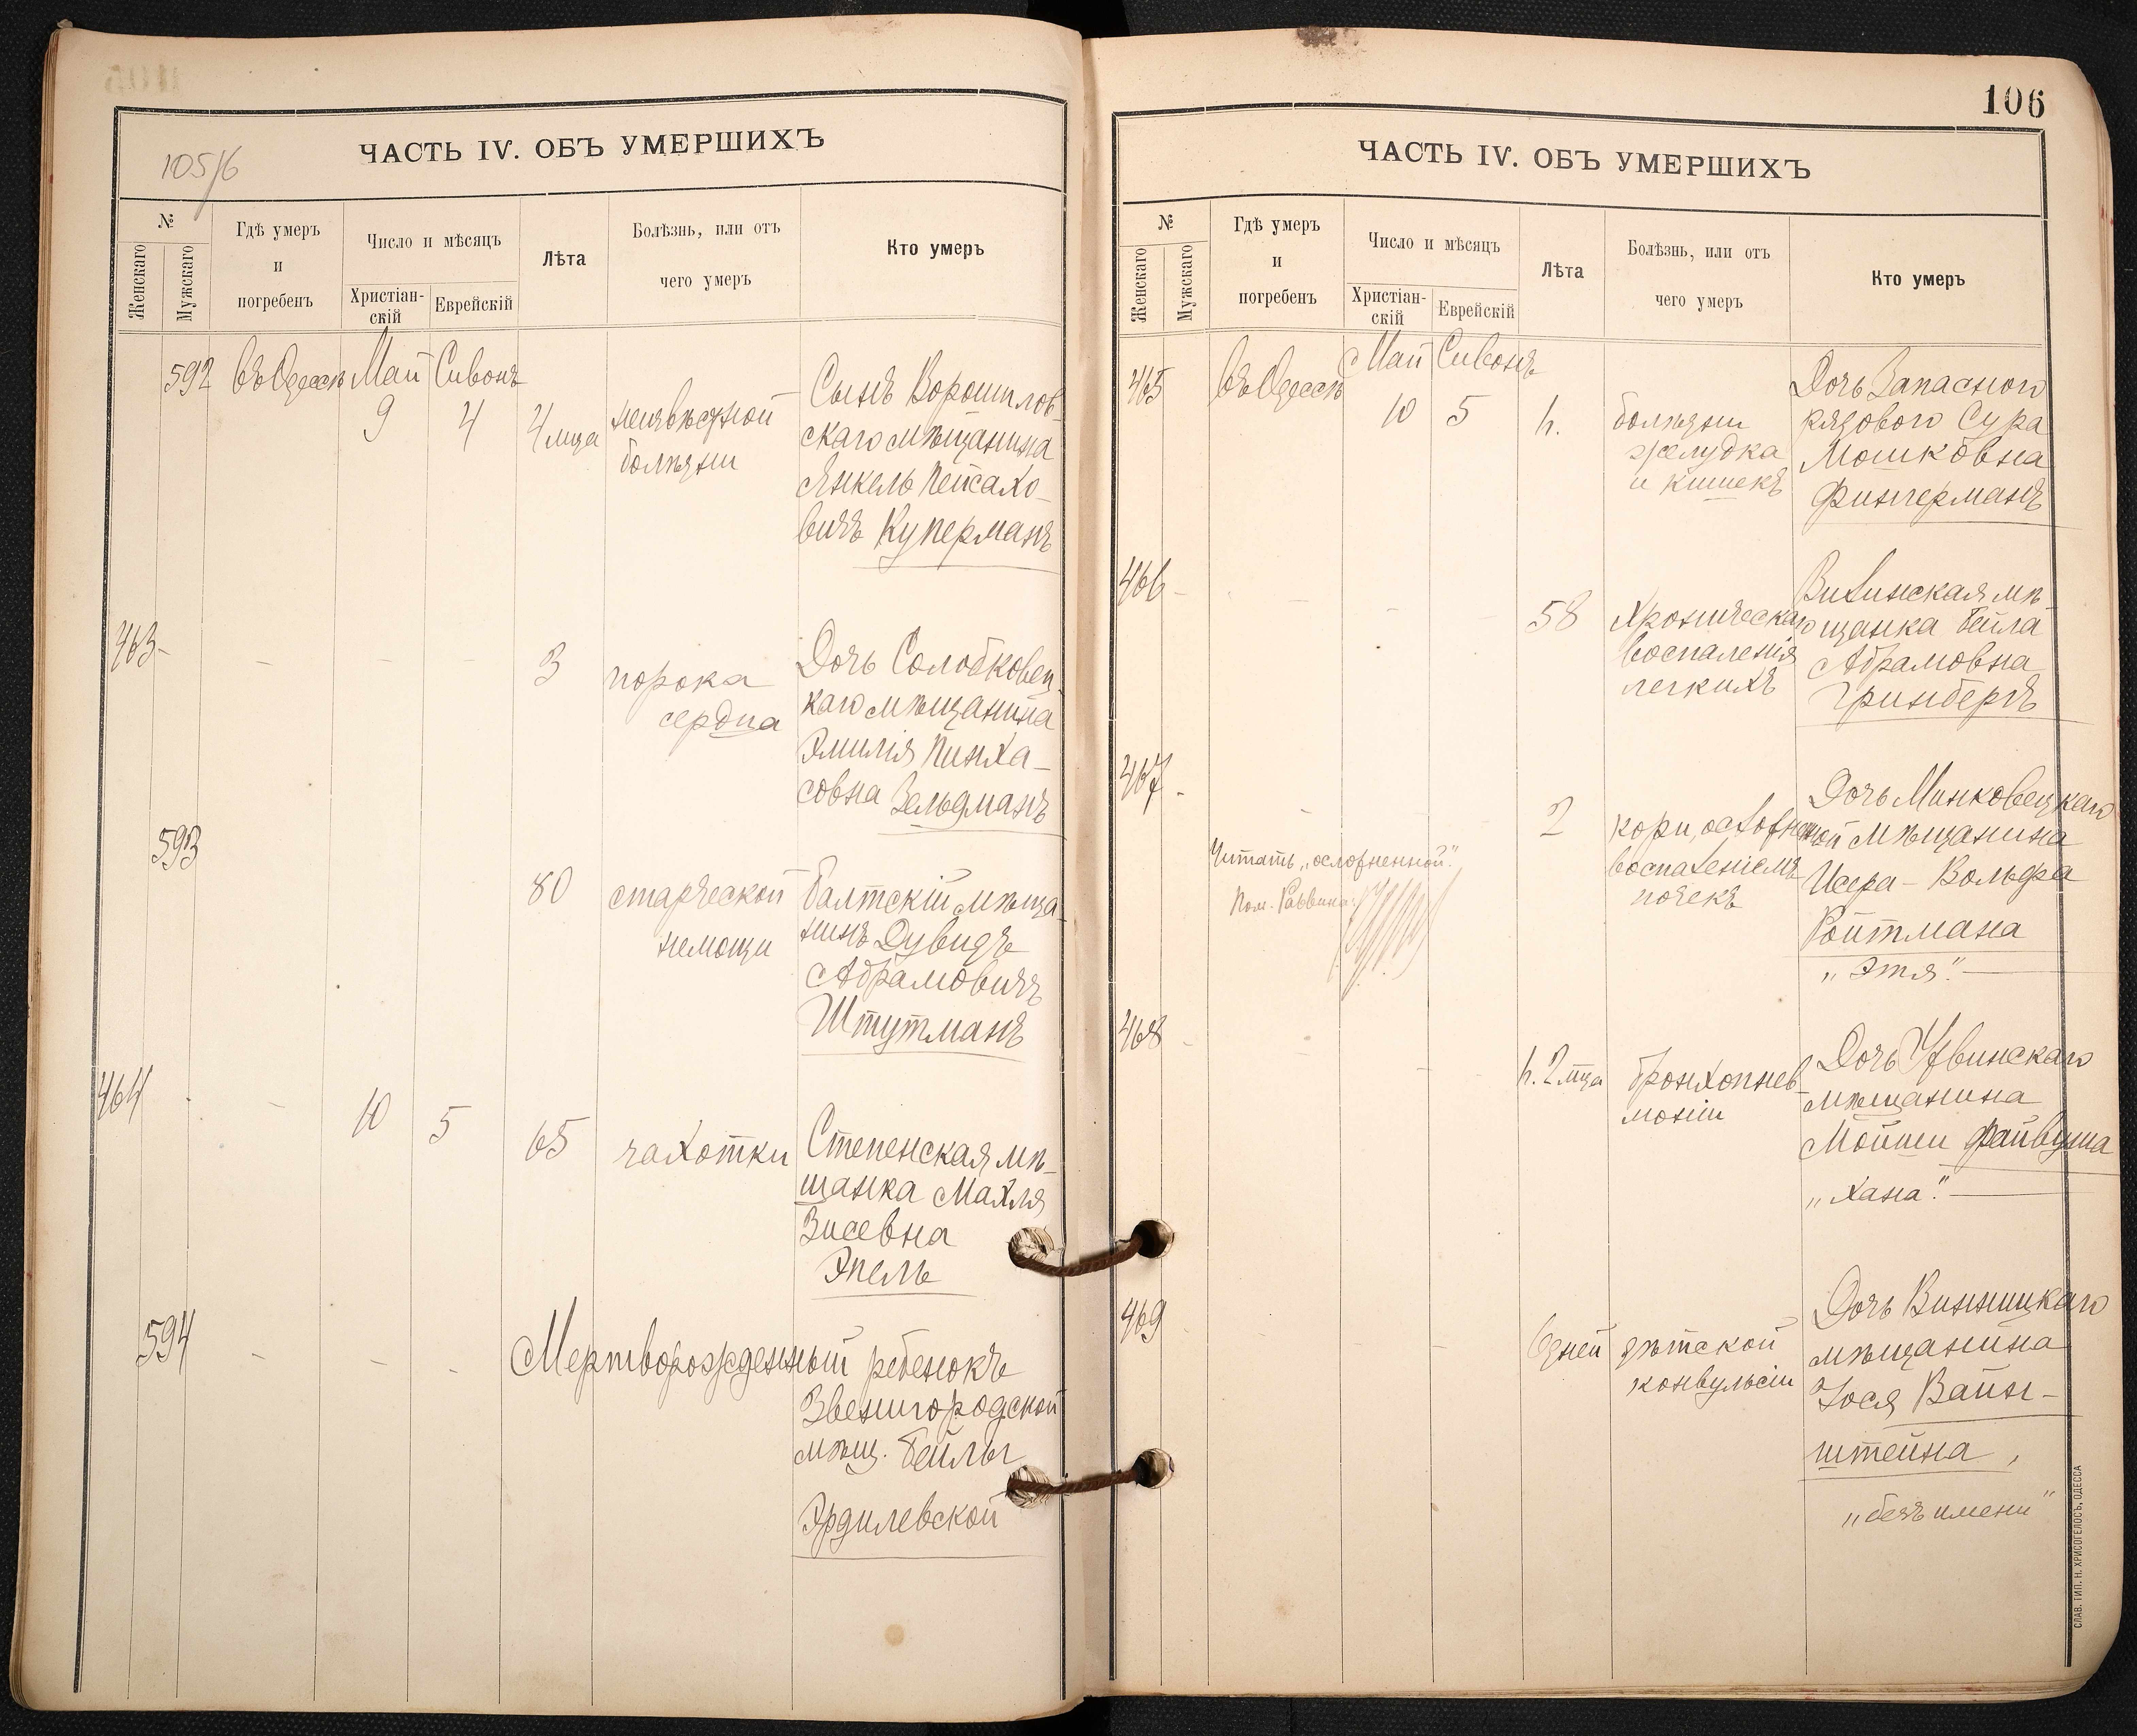 105/6
ЧАСТЬ IV. ОБЪ УМЕРШИХЪ
№
Женскаго
Мужскаго
Гдѣ умеръ
и
погребенъ
Число и мѣсяцъ
Христіан-
скій
Еврейскій
Лѣта
Болѣзнь, или отъ
чего умеръ
Кто умеръ
592 въ Одессѣ Май Сивонъ
9 4 4 мца
неизвѣстной
болѣзни
Сынъ Ворошилов-
скаго мѣщанина
Янкель Пейсахо-
вичъ Куперманъ
463 - - - - 3
порока
сердца
Дочь Солобковец-
каго мѣщанина
Эмилія Пинха-
совна Зельдманъ
593
80
старческой
немощи
Балтскій мѣща-
нинъ Дувидъ
Абрамовичъ
Штутманъ
464 - - 10 5 65
чахотки
Степенская мѣ-
щанка Махля
Зисевна
Эпель
594 - - -
Мертворожденный ребенокъ
Звенигородской
мѣщ. Бейлы
Эрдилевской
106
ЧАСТЬ IV. ОБЪ УМЕРШИХЪ
№
Женскаго
Мужскаго
Гдѣ умеръ
и
погребенъ
Число и мѣсяцъ
Христіан-
скій
Еврейскій
Лѣта
Болѣзнь, или отъ
чего умеръ
Кто умеръ
465 въ Одессѣ Май Сивонъ
10 5 1 г.
болѣзни
желудка
и кишекъ
Дочь Запасного
рядового Сура
Мошковна
Фингерманъ
466 - - - - 58
Хроническаго
воспаленія
легкихъ
мѣ-
щанка Бейла
Абрамовна
Гринбергъ
467 - - 2
кори, осложненной
воспаленіемъ
почекъ
Дочь Миньковецкаго
мѣщанина
Исера-Вольфа
Ройтмана
„Этя".
Читать „осложненной".
Пом. Раввина
468 - - - -
1 г. 2 мца
бронхопнев-
моніи
Дочь
мѣщанина
Мойши Файвуша
„Хана".
469 - -
6 дней
дѣтской
конвульсіи
Дочь Винницкаго
мѣщанина
Іося Вайн-
штейна,
„безъ имени"
СЛАВ. ТИП. Н. ХРИСОГЕЛОСЪ, ОДЕССА